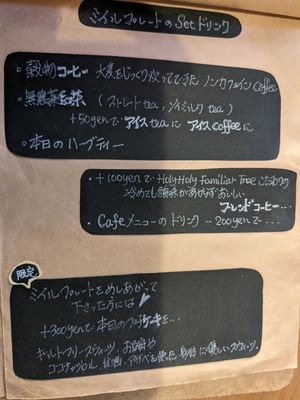 ミイルプレートのSetドリンク
・穀物コーヒー 大麦をじっくり炒ってできた ノンカフェインCoffee
・無農薬紅茶 (ストレートtea, ソイミルクtea)
+50yenで アイスteaに アイスcoffeeに
・本日のハーブティー
・+100yenで HolyHoly Familiar Tree こだわりの
冷めても酸味が出せずおいしい
ブレンドコーヒー…
・Cafeメニューのドリンク -200yenで…
限定
ミイルプレートをめしあがって
下さった方には
+300yenで 本日の ケーキを…
ギルトフリースウィーツ、お豆腐や
ココナッツオイル、甘酒、アガベを使った 身体に優しいスウィーツ。